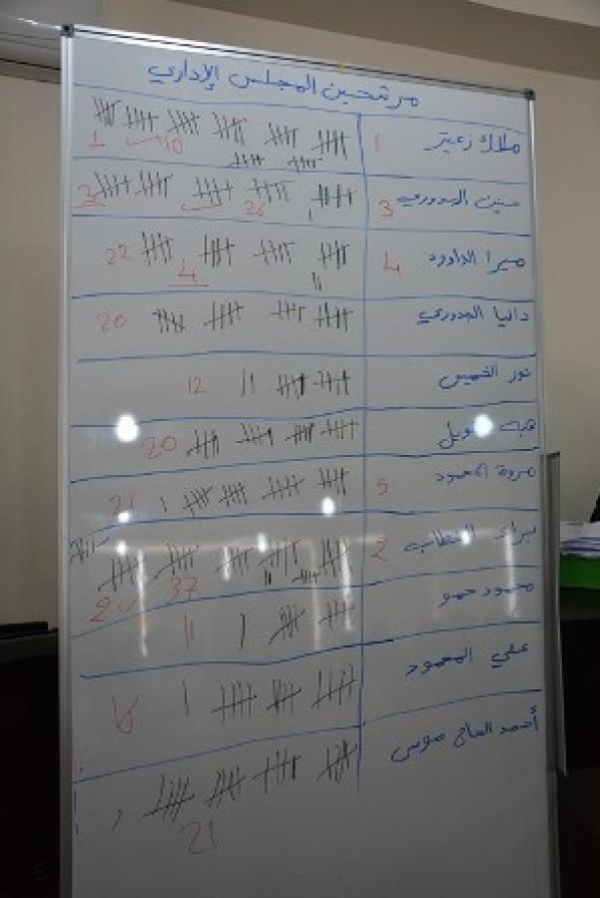 مرشحين المجلس الإداري
ملاك زعيتر 1 10 1
الجدوري 3 26 3
ميرا الداوود 4 22 4
داليا الجدوري 20
نور الخميس 12
هبة 20
مروة المحمود 5 21
براء الخطاب 2 37 2
محمود حمو 11
علي المحمود
أحمد الحاج موسى 21